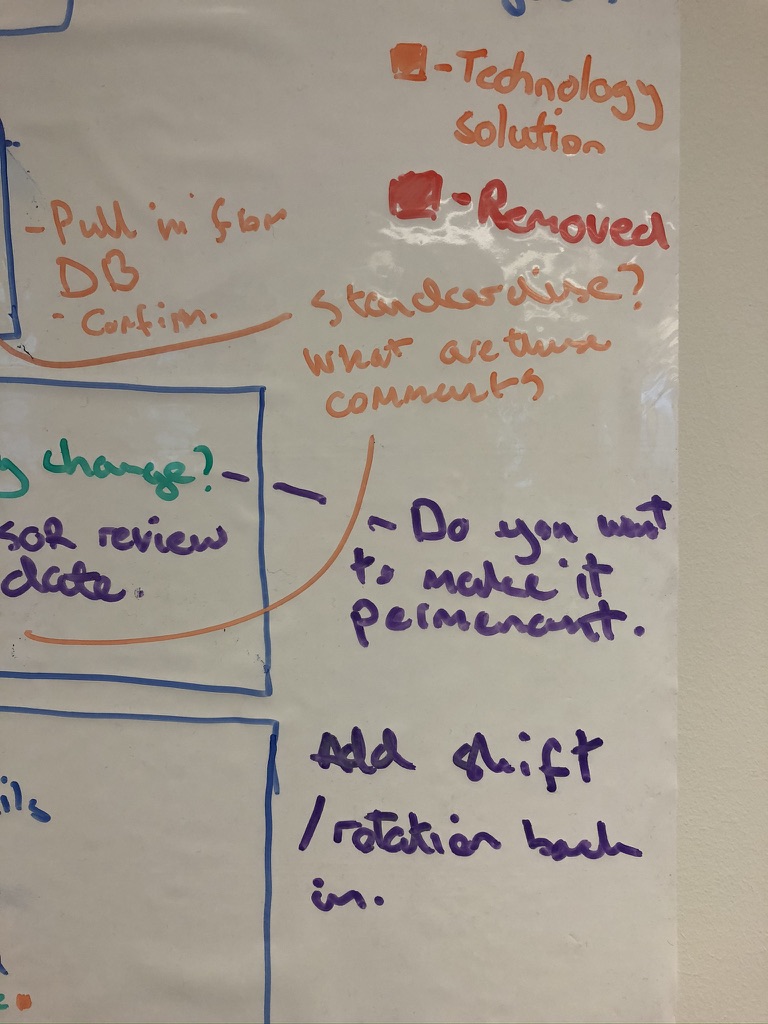 - Technology
solution
- Removed
- Pull in from
DB
- Confirm.
Standardise?
What are these
comments
change?
- Do you want
to make it
permenant.
review
date.
Add shift
/rotation back
in.